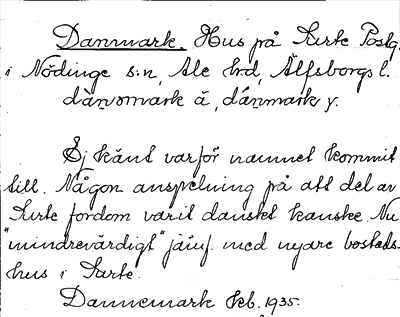 Danmark. Hus på Surte Postg.
i Nödinge s:n, Ale hd, Älfsborgs l.
dánsmark ā, dánmark y.
Ej känt varför namnet kommit
till. Någon anspelning på att del av
Surte fordom varit danskt kanske. Nu
"mindrevärdigt" jämf. med nyare bostads-
hus i Surte.
Dannemark Feb. 1935.